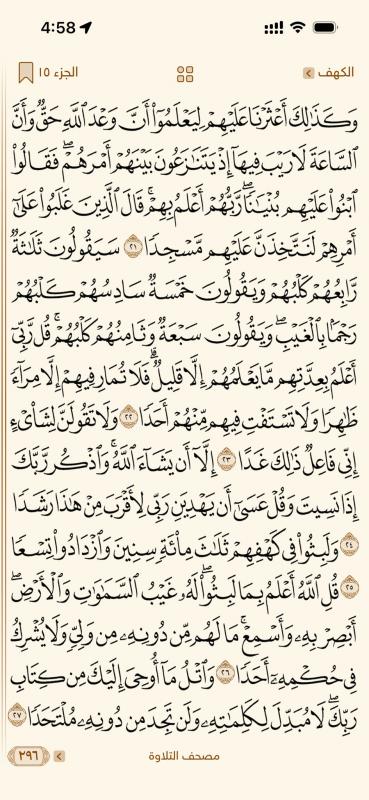 4:58
الكهف
الجزء ١٥
وَكَذَٰلِكَ أَعْثَرْنَا عَلَيْهِمْ لِيَعْلَمُوٓا۟ أَنَّ وَعْدَ ٱللَّهِ حَقٌّ وَأَنَّ
ٱلسَّاعَةَ لَا رَيْبَ فِيهَآ إِذْ يَتَنَٰزَعُونَ بَيْنَهُمْ أَمْرَهُمْ ۖ فَقَالُوا۟
ٱبْنُوا۟ عَلَيْهِم بُنْيَٰنًا ۖ رَّبُّهُمْ أَعْلَمُ بِهِمْ ۚ قَالَ ٱلَّذِينَ غَلَبُوا۟ عَلَىٰٓ
أَمْرِهِمْ لَنَتَّخِذَنَّ عَلَيْهِم مَّسْجِدًا ٢١ سَيَقُولُونَ ثَلَٰثَةٌ
رَّابِعُهُمْ كَلْبُهُمْ وَيَقُولُونَ خَمْسَةٌ سَادِسُهُمْ كَلْبُهُمْ
رَجْمًۢا بِٱلْغَيْبِ ۖ وَيَقُولُونَ سَبْعَةٌ وَثَامِنُهُمْ كَلْبُهُمْ ۚ قُل رَّبِّىٓ
أَعْلَمُ بِعِدَّتِهِم مَّا يَعْلَمُهُمْ إِلَّا قَلِيلٌ ۗ فَلَا تُمَارِ فِيهِمْ إِلَّا مِرَآءً
ظَٰهِرًا وَلَا تَسْتَفْتِ فِيهِم مِّنْهُمْ أَحَدًا ٢٢ وَلَا تَقُولَنَّ لِشَا۟ىْءٍ
إِنِّى فَاعِلٌ ذَٰلِكَ غَدًا ٢٣ إِلَّآ أَن يَشَآءَ ٱللَّهُ ۚ وَٱذْكُر رَّبَّكَ
إِذَا نَسِيتَ وَقُلْ عَسَىٰٓ أَن يَهْدِيَنِ رَبِّى لِأَقْرَبَ مِنْ هَٰذَا رَشَدًا
٢٤ وَلَبِثُوا۟ فِى كَهْفِهِمْ ثَلَٰثَ مِا۟ئَةٍ سِنِينَ وَٱزْدَادُوا۟ تِسْعًا
٢٥ قُلِ ٱللَّهُ أَعْلَمُ بِمَا لَبِثُوا۟ ۖ لَهُۥ غَيْبُ ٱلسَّمَٰوَٰتِ وَٱلْأَرْضِ ۖ
أَبْصِرْ بِهِۦ وَأَسْمِعْ ۚ مَا لَهُم مِّن دُونِهِۦ مِن وَلِىٍّ وَلَا يُشْرِكُ
فِى حُكْمِهِۦٓ أَحَدًا ٢٦ وَٱتْلُ مَآ أُوحِىَ إِلَيْكَ مِن كِتَابِ
رَبِّكَ ۖ لَا مُبَدِّلَ لِكَلِمَٰتِهِۦ وَلَن تَجِدَ مِن دُونِهِۦ مُلْتَحَدًا ٢٧
مصحف التلاوة
٢٩٦